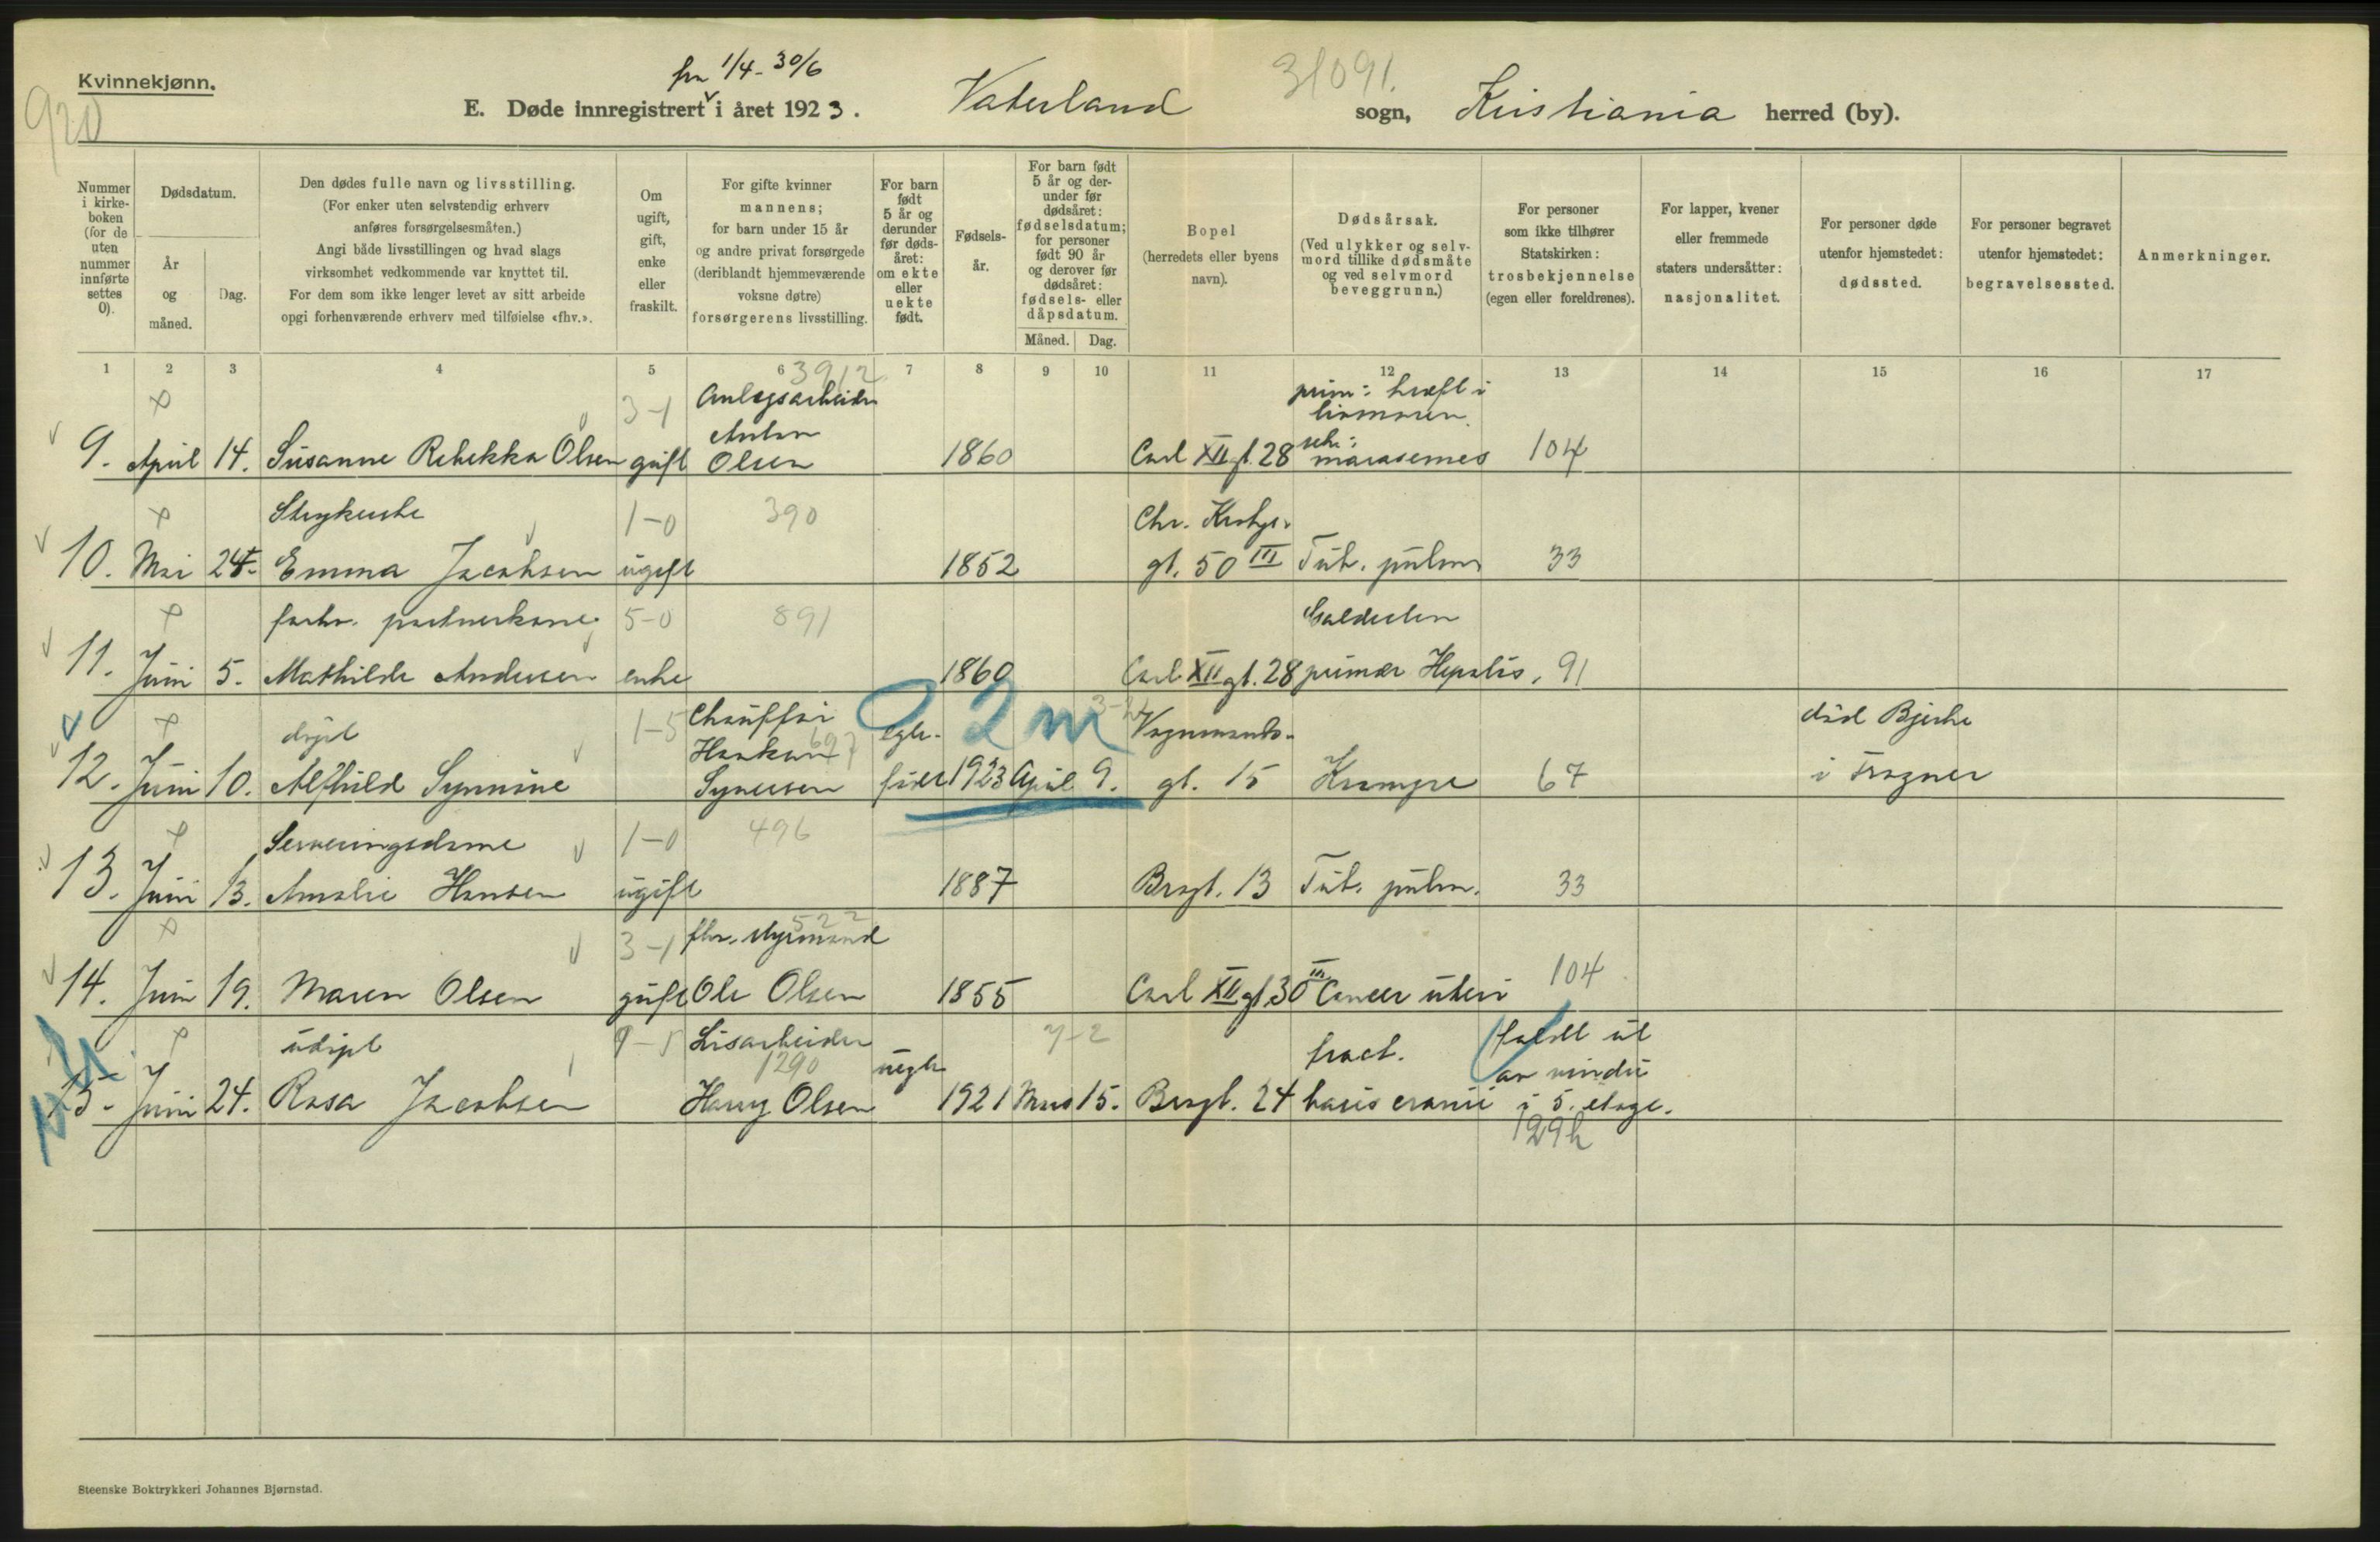 Kvinnekjønn.
920
fra 1/4 - 30/6
E. Døde innregistrert i året 1923.
Vaterland sogn,
31091.
Kristiania herred (by).
Nummer i kirkeboken (for de uten nummer innførte settes 0).
Dødsdatum.
År og måned.
Dag.
Den dødes fulle navn og livsstilling.
(For enker uten selvstendig erhverv
anføres forsørgelsesmåten.)
Angi både livsstillingen og hvad slags
virksomhet vedkommende var knyttet til.
For dem som ikke lenger levet av sitt arbeide
opgi forhenværende erhverv med tilføielse «fhv.».
Om
ugift,
gift,
enke
eller
fraskilt.
For gifte kvinner
mannens;
for barn under 15 år
og andre privat forsørgede
(deriblandt hjemmeværende
voksne døtre)
forsørgerens livsstilling.
For barn
født
5 år og
derunder
før døds-
året:
om ekte
eller
uekte
født.
Fødsels-
år.
For barn født
5 år og der-
under før
dødsåret:
fødselsdatum;
for personer
født 90 år
og derover før
dødsåret:
fødsels- eller
dåpsdatum.
Måned. Dag.
Bopel
(herredets eller byens
navn).
Dødsårsak.
(Ved ulykker og selv-
mord tillike dødsmåte
og ved selvmord
beveggrunn.)
For personer
som ikke tilhører
Statskirken:
trosbekjennelse
(egen eller foreldrenes).
For lapper, kvener
eller fremmede
staters undersåtter:
nasjonalitet.
For personer døde
utenfor hjemstedet:
dødssted.
For personer begravet
utenfor hjemstedet:
begravelsessted.
Anmerkninger.
1 2 3 4 5 6 7 8 9 10 11 12 13 14 15 16 17
3-1 3912 Anlegsarbeider prim: kræft i
Anton
9. April 14. Susanne Rebekka Olsen gift Olsen 1860 Carl XII gt. 28 sek: marasemes 104
Strykerske 1-0 390 Chr. Krohgs.
10. Mai 24. Emma Jacobsen ugift 1852 gt. 50 III Tub. pulm 33
forhv. portnerkone 5-0 891
11. Juni 5. Mathilde Andersen enke 1860 Carl XII gt. 28 primær 91
døpt 1-5 Chauffør 697 egte- 2 m Vognmands- død Bjerke
Haakon
12. Juni 10. Alfhild Synnøve Syversen født 1923 April 9. gt. 15 Krampe 67 i Frogner
Serveringsdame 1-0 496
13. Juni 13. Amalie Hansen ugift 1887 Brogt. 13 Tub. pulm. 33
3-1 fhv. Myrmand 522
14. Juni 19. Maren Olsen gift Ole Olsen 1855 Carl XII gt 30 III Cancer uteri 104
udøpt Lisarbeider 1290 uegte 7-2 fract. faldt ut
av vindu
15. Juni 24. Rosa Jacobsen Harry Olsen 1921 Mars 15. Brogt. 24 basis cranii i 5. etage.
129h
Steenske Boktrykkeri Johannes Bjørnstad.